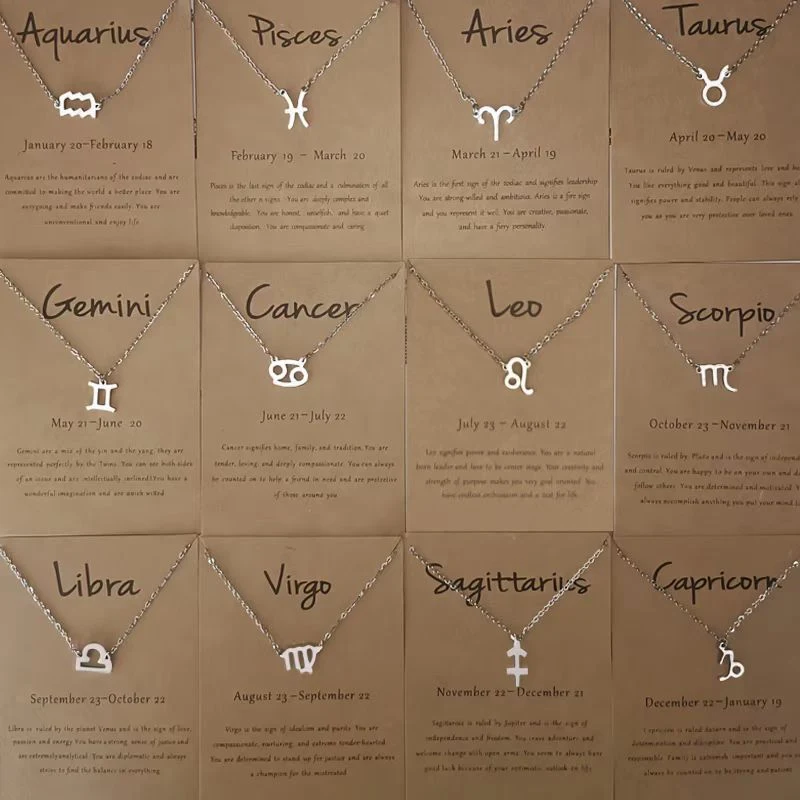 Aquarius
January 20-February 18
Aquarius are the humanitarians of the zodiac and are
committed to making the world a better place. You are
easygoing and make friends easily. You are
unconventional and enjoy life.
Pisces
February 19 - March 20
Pisces is the last sign of the zodiac and a culmination of all
the other n signs. You are deeply complex and
knowledgeable. You are honest, unselfish, and have a quiet
disposition. You are compassionate and caring.
Aries
March 21-April 19
Aries is the first sign of the zodiac and signifies leadership
You are strong-willed and ambitious. Aries is a fire sign
and you represent it well. You are creative, passionate,
and have a fiery personality.
Taurus
April 20-May 20
Taurus is ruled by Venus and represents love and
You like everything good and beautiful. This sign al
signifies power and stability. People can always rely
you as you are very protective over loved ones.
Gemini
May 21-June 20
Gemini are a mix of the yin and the yang, they are
represented perfectly by the Twins. You can see both sides
of an issue and are intellectually inclined.You have a
wonderful imagination and are quick witted
Cancer
June 21-July 22
Cancer signifies home, family, and tradition. You are
tender, loving, and deeply compassionate. You can always
be counted on to help a friend in need and are protective
of those around you
Leo
July 23 - August 22
Leo signifies power and exuberance. You are a natural
born leader and love to be center stage. Your creativity and
strength of purpose makes you very goal oriented. You
have endless enthusiasm and a zest for life.
Scorpio
October 23-November 21
Scorpio is ruled by Pluto and is the sign of independ
and control. You are happy to be on your own and d
follow others. You are determined and motivated. Y
always accomplish anything you put your mind t
Libra
September 23-October 22
Libra is ruled by the planet Venus and is the sign of love,
passion and energy You have a strong sense of justice and
are extremely analytical. You are diplomatic and always
strive to find the balance in everything.
Virgo
August 23-September 22
Virgo is the sign of idealism and purity. You are
compassionate, nurturing, and extreme tender-hearted.
You are determined to stand up for justice and are always
a champion for the mistreated
Sagittarius
November 22-December 21
Sagittarius is ruled by Jupiter and is the sign of
independence and freedom. You crave adventure and
welcome change with open arms. You seem to always have
good luck because of your optimistic outlook on life.
Capricorn
December 22-January 19
Capricorn is ruled Saturn and is the sign of
determination and discipline. You are practical and
responsible. Family is extremely important and you
always be counted on to be strong and patient